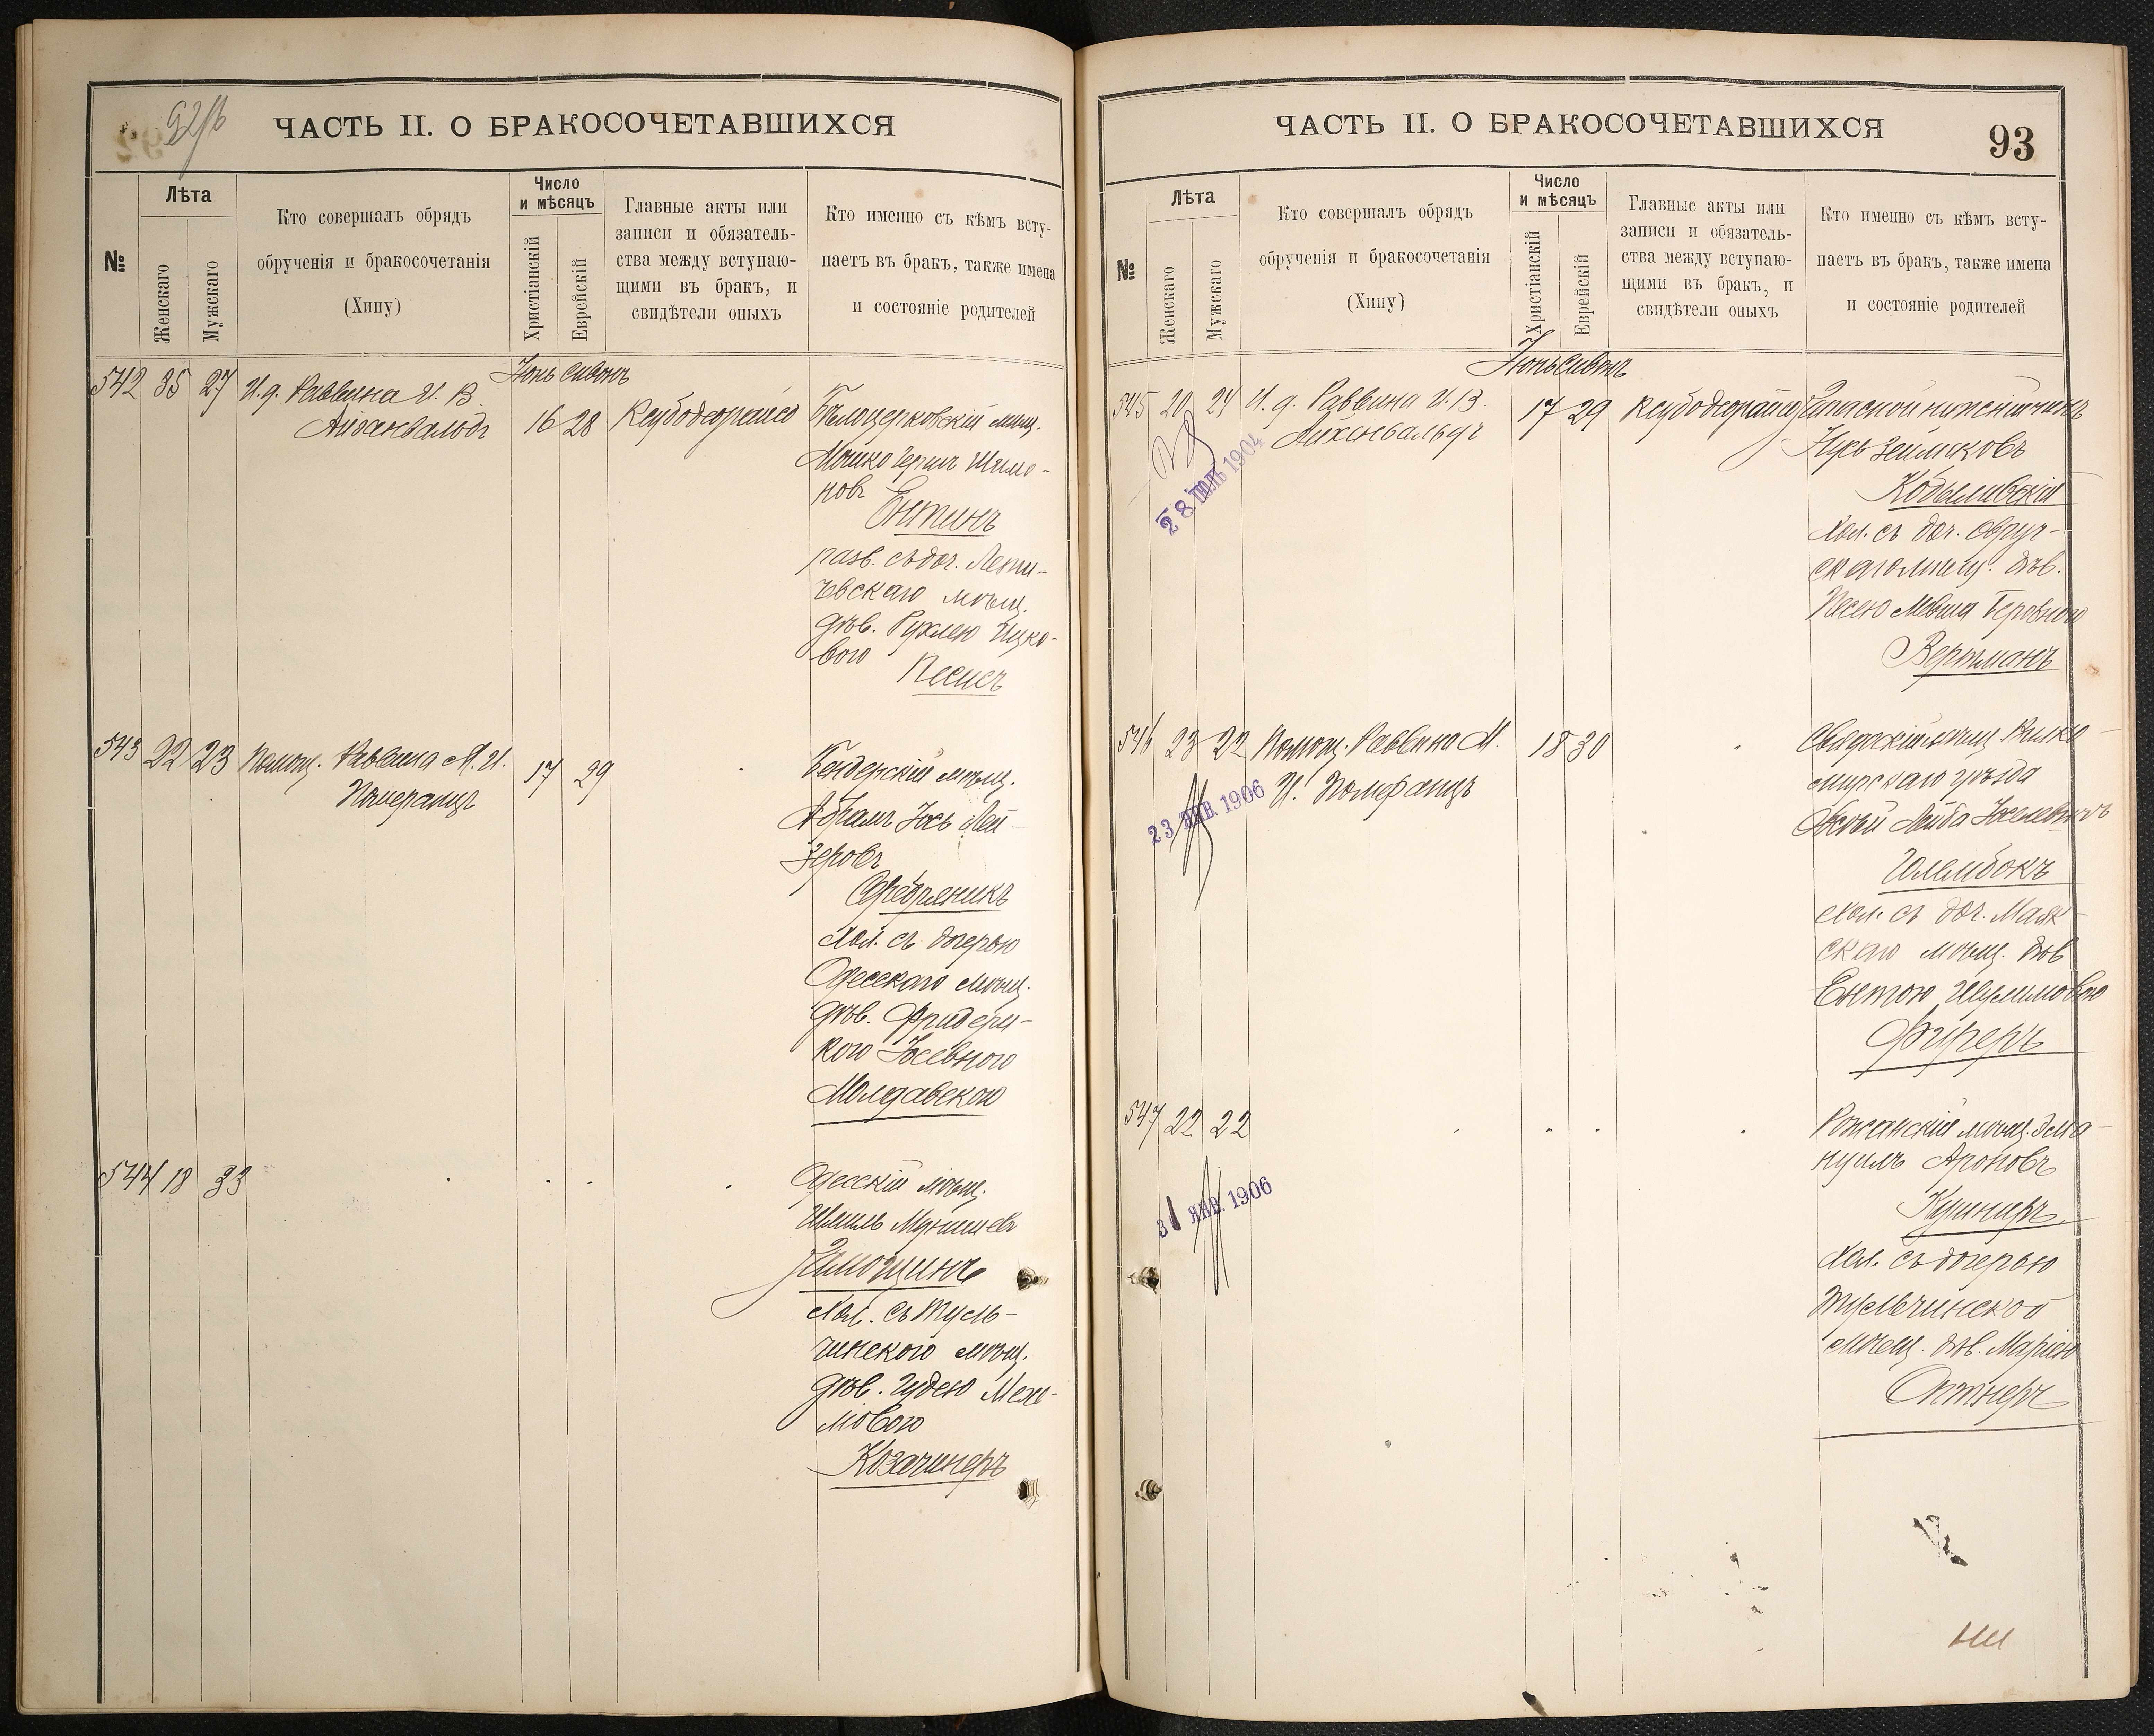 92/б
ЧАСТЬ II. О БРАКОСОЧЕТАВШИХСЯ
№
Лѣта
Женскаго
Мужскаго
Кто совершалъ обрядъ
обрученія и бракосочетанія
(Хипу)
Число
и мѣсяцъ
Христіанскій
Еврейскій
Главные акты или
записи и обязатель-
ства между вступаю-
щими въ бракъ, и
свидѣтели оныхъ
Кто именно съ кѣмъ всту-
паетъ въ бракъ, также имена
и состояніе родителей
Іюнь Сивонъ
542 35 27 И. д. Раввина И. В.
Айзенвальдъ
16 28
Бѣлоцерковскій мѣщ.
Мошко Герш Шимо-
новъ
Ентинъ
разв. съ доч. Лети-
чевскаго мѣщ.
дѣв. Рухлею Ицко-
вою
Песисъ
543 22 23 Помощ. Раввина М. И.
Померанцъ
17 29
Бендерскій мѣщ.
Абрамъ Іось Лей-
зеровъ
Серебряникъ
хол. съ дочерью
Одесскаго мѣщ.
дѣв. Фридери-
кою Іосевною
Молдавскою
544 18 23
Одесскій мѣщ.
Шмиль
Замощинъ
хол. съ Туль-
чинскою мѣщ.
дѣв.
мовою
Козачинеръ
ЧАСТЬ II. О БРАКОСОЧЕТАВШИХСЯ
93
№
Лѣта
Женскаго
Мужскаго
Кто совершалъ обрядъ
обрученія и бракосочетанія
(Хипу)
Число
и мѣсяцъ
Христіанскій
Еврейскій
Главные акты или
записи и обязатель-
ства между вступаю-
щими въ бракъ, и
свидѣтели оныхъ
Кто именно съ кѣмъ всту-
паетъ въ бракъ, также имена
и состояніе родителей
Іюнь Сивонъ
545 20 24 И. д. Раввина И. В.
Айхенвальдъ
17 29
28 1904
Запасной
Зейликовъ
Кобыливскій
хол. съ доч. Овруч-
скаго мѣщ. дѣв.
Песею
Вертманъ
546 23 22 Помощ. Раввина М.
И. Померанцъ
18 30
23 ЯНВ. 1906
мѣщ.
мирскаго уѣзда
Лейба
хол. съ доч. Маяк-
скаго мѣщ. дѣв
Ентою Шулимовою
Фиреръ
547 22 22
31 ЯНВ. 1906
мѣщ. Эма-
нуилъ Ароновъ
Кушниръ
хол. съ дочерью
Тульчинской
мѣщ. дѣв. Маріею